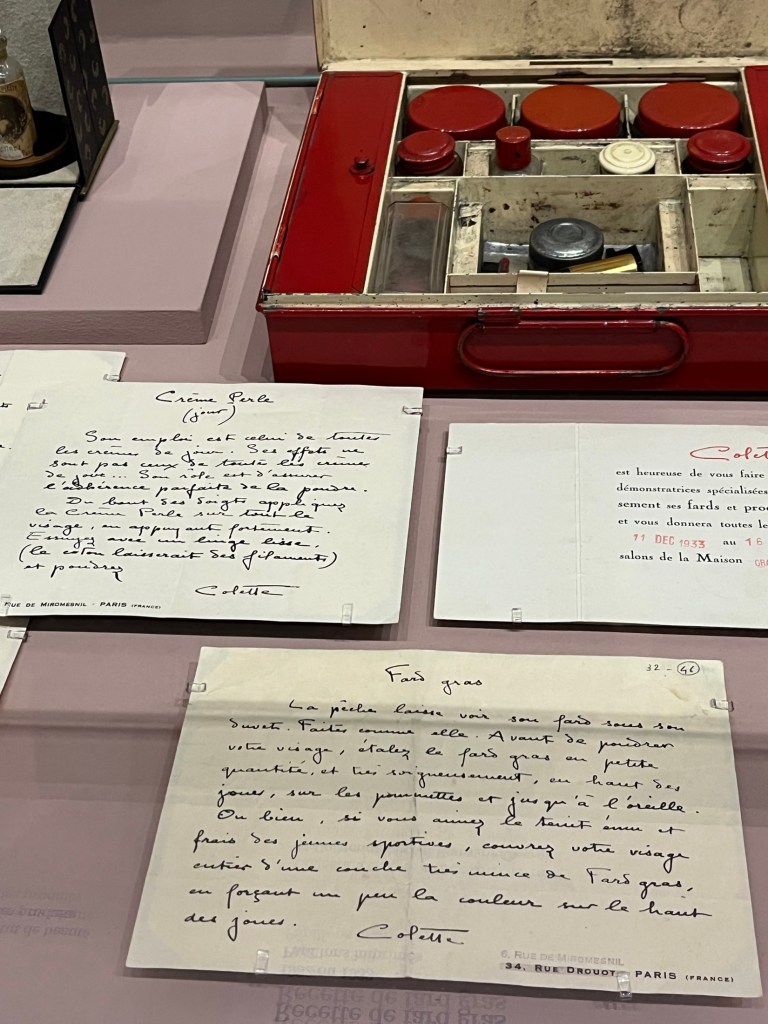 Crème Perle
(jour)
Son emploi est celui de toutes
les crèmes de jour. Ses effets ne
sont pas ceux de toutes les crèmes
de jour... Son rôle est d'assurer
l'adhérence parfaite de la poudre.
Du bout des doigts appliquez
la Crème Perle sur tout le
visage, en appuyant fortement.
Essuyez avec un linge lisse,
(le coton laisserait des filaments)
et poudrez
Colette
RUE DE MIROMESNIL - PARIS (FRANCE)
Colet
est heureuse de vous faire
démonstratrices spécialisées
sement ses fards et pro
et vous donnera toutes le
11 DEC 1933 au 16
salons de la Maison
32 - 46
Fard gras
La pêche laisse voir son fard sous son
duvet. Faites comme elle. Avant de poudrer
votre visage, étalez le fard gras en petite
quantité, et très soigneusement, en haut des
joues, sur les pommettes et jusqu'à l'oreille.
Ou bien, si vous aimez le teint ému et
frais des jeunes sportives, couvrez votre visage
entier d'une couche très mince de Fard gras,
en forçant un peu la couleur sur le haut
des joues.
Colette
6, RUE DE MIROMESNIL
34, RUE DROUOT - PARIS (FRANCE)
Recette de fard gras